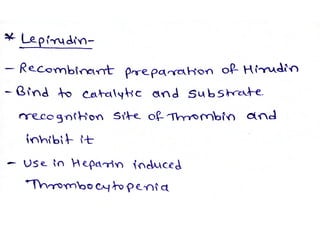 * Lepirudin-
- Recombinant preparation of Hirudin
- Bind to catalytic and substrate
recognition site of Thrombin and
inhibit it
- Use in Heparin induced
Thrombocytopenia